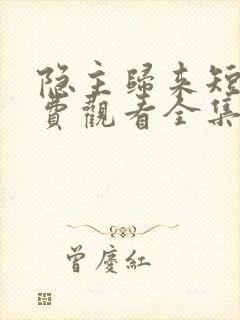 隐主歸来短
費觀看全集
曾慶紅